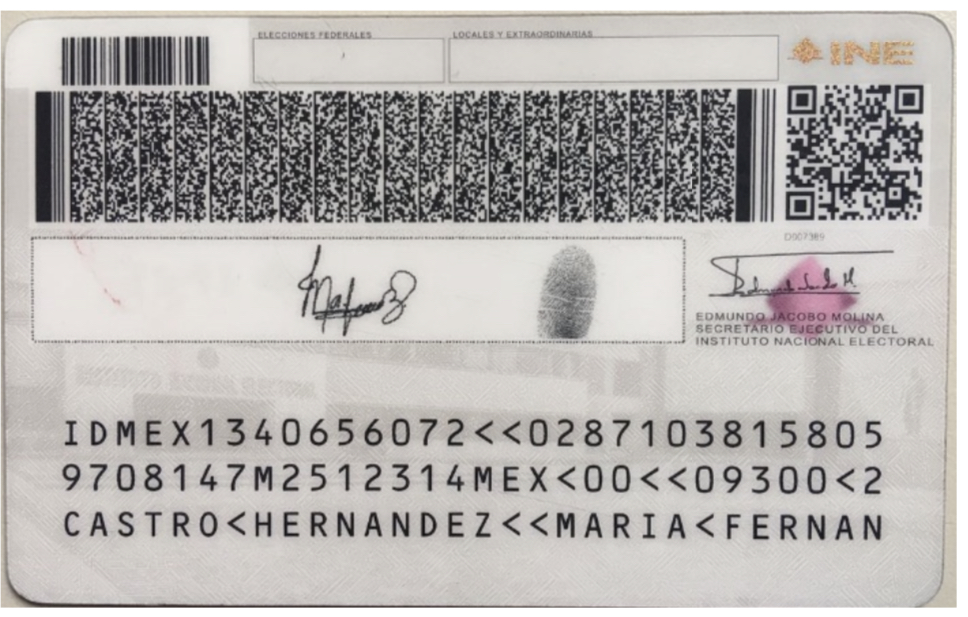 ELECCIONES FEDERALES
LOCALES Y EXTRAORDINARIAS
INE
D007389
EDMUNDO JACOBO MOLINA
SECRETARIO EJECUTIVO DEL
INSTITUTO NACIONAL ELECTORAL
IDMEX1340656072<<0287103815805
9708147M2512314MEX<00<<09300<2
CASTRO<HERNANDEZ<<MARIA<FERNAN